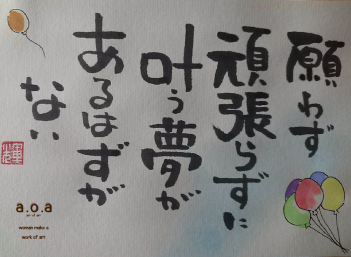 願わず
頑張らずに
叶う夢が
あるはずが
ない
a.o.a
art of art
woman make a
work of art